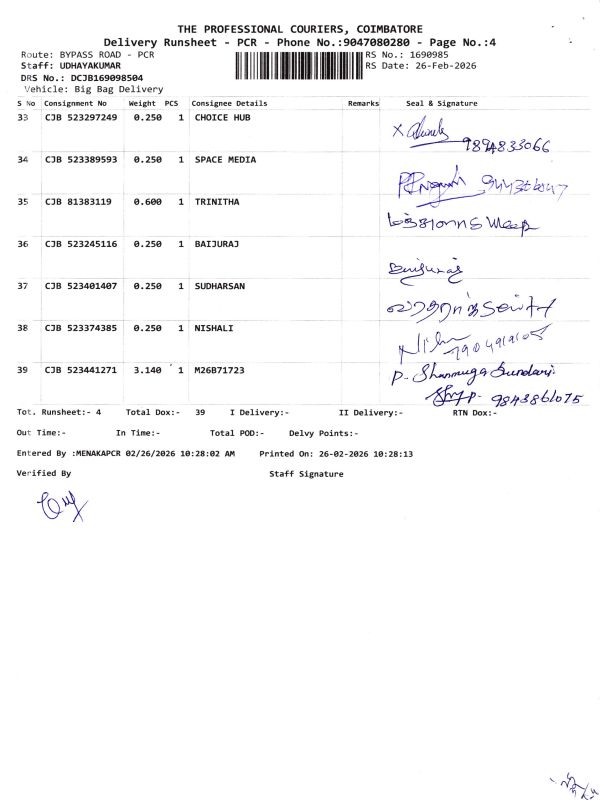 THE PROFESSIONAL COURIERS, COIMBATORE
Delivery Runsheet - PCR - Phone No.:9047080280 - Page No.:4
Route: BYPASS ROAD - PCR RS No.: 1690985
Staff: UDHAYAKUMAR RS Date: 26-Feb-2026
DRS No.: DCJB169098504
Vehicle: Big Bag Delivery
S No Consignment No Weight PCS Consignee Details Remarks Seal & Signature
33 CJB 523297249 0.250 1 CHOICE HUB
9894833066
34 CJB 523389593 0.250 1 SPACE MEDIA
35 CJB 81383119 0.600 1 TRINITHA
36 CJB 523245116 0.250 1 BAIJURAJ
37 CJB 523401407 0.250 1 SUDHARSAN
38 CJB 523374385 0.250 1 NISHALI
7904919105
39 CJB 523441271 3.140 1 M26B71723 P. Shanmuga Sundari.
9843861075
Tot. Runsheet:- 4 Total Dox:- 39 I Delivery:- II Delivery:- RTN Dox:-
Out Time:- In Time:- Total POD:- Delvy Points:-
Entered By :MENAKAPCR 02/26/2026 10:28:02 AM Printed On: 26-02-2026 10:28:13
Verified By Staff Signature